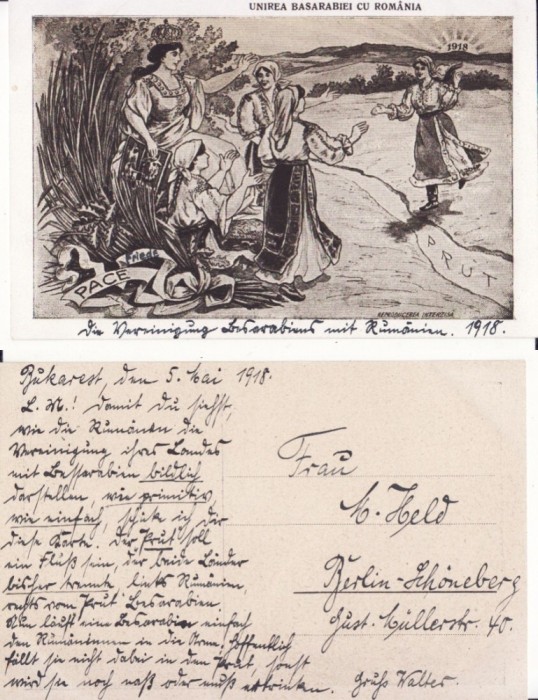 UNIREA BASARABIEI CU ROMÂNIA
1918
PRUT
Friede
PACE
REPRODUCEREA INTERZISĂ
Die Vereinigung Besarabiens mit Rumänien. 1918.
Bukarest, den 5. Mai 1918.
L. M.! Damit du siehst,
wie die Rumänen die
Vereinigung ihres Landes
mit Bessarabien bildlich
darstellen, wie primitiv,
wie einfach, schicke ich dir
diese Karte. Der Prut soll
ein Fluß sein, der beide Länder
bisher trennte, links Rumänien,
rechts vom Prut Besarabien.
Nun läuft eine Besarabin einfach
den Rumäninnen in die Arme. Hoffentlich
fällt sie nicht dabei in den Prut, sonst
wird sie noch naß oder muß ertrinken. Gruß Walter.
Frau
M. Held
Berlin-Schöneberg
Gust. Müllerstr. 40.